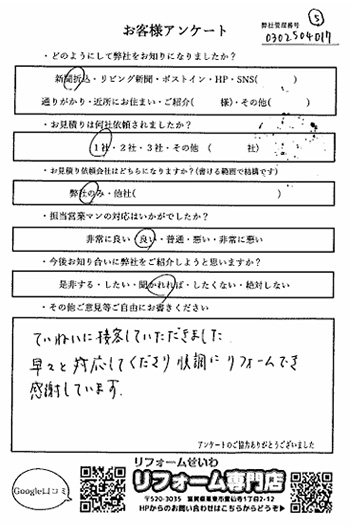 お客様アンケート
弊社管理番号
⑤
0302504017
・どのようにして弊社をお知りになりましたか？
新聞折込・リビング新聞・ポストイン・HP・SNS(　　)
通りがかり・近所にお住まい・ご紹介(　　様)・その他(　　)
・お見積りは何社依頼されましたか？
1社・2社・3社・その他　(　　社)
・お見積り依頼会社はどちらになりますか？(書ける範囲で結構です)
弊社のみ・他社(　　)
・担当営業マンの対応はいかがでしたか？
非常に良い・良い・普通・悪い・非常に悪い
・今後お知り合いに弊社をご紹介しようと思いますか？
是非する・したい・聞かれれば・したくない・絶対しない
・その他ご意見等ご自由にお書きください
ていねいに接客していただきました。
早々と対応してくださり快調にリフォームでき
感謝しています。
アンケートのご協力ありがとうございました
Google口コミ
リフォームせいわ
リフォーム専門店
〒520-3035　滋賀県栗東市霊仙寺1丁目2-12
HPからのお問い合わせはこちらからどうぞ▶